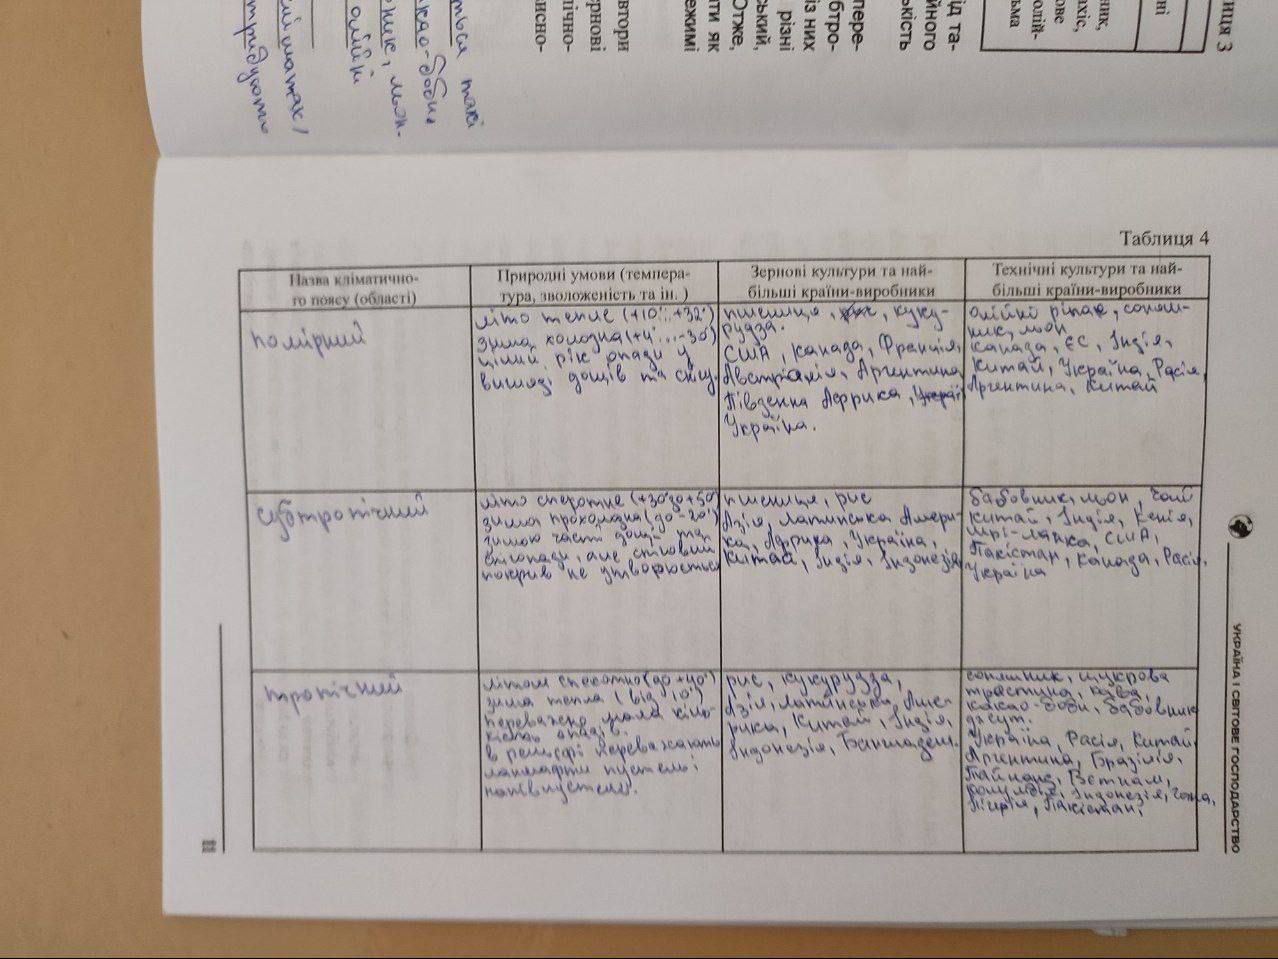 Таблиця 4
Назва кліматично-
го поясу (області)
Природні умови (темпера-
тура, зволоженість та ін. )
Зернові культури та най-
більші країни-виробники
Технічні культури та най-
більші країни-виробники
помірний
літо тепле (+10°..+32°)
зима холодна (+4°...-30)
цілий рік опади у
вигляді дощів та снігу.
пшениця, куку-
рудза.
США, Канада, Франція,
Австралія, Аргентина
Південна Африка,
Україна.
олійні ріпак, соняш-
ник, льон
Канада, ЄС, Індія,
Китай, Україна, Расія,
Аргентина, Китай
субтропічний
літо спекотне (+30°до+50°)
зима прохолодна (до -20°)
зимою часті дощі та
снігопади, але сніговий
покрив не утворюється
пшениця, рис
Азія, Латинська Амери-
ка, Африка, Україна,
Китай, Індія, Індонезія
бавовник, льон, чай
Китай, Індія, Кенія,
Шрі-Ланка, США,
Пакістан, Канада, Расія,
Україна
тропічний
літом спекотно (до +40°)
зима тепла (від 10°)
переважно мала кіль-
кість опадів.
в рельєфі переважають
ланшафти пустель і
напівпустель.
рис, кукурудза,
Азія, Латинська Аме-
рика, Китай, Індія,
Індонезія, Бангладеш.
соняшник, цукрова
тростина, кава,
какао-боби, бавовник
джут.
Україна, Расія, Китай
Аргентина, Бразілія,
Тайланд, Вєтнам,
Колумбія, Індонезія, Гана,
Нігерія, Пакістан,
УКРАЇНА І СВІТОВЕ ГОСПОДАРСТВО
11